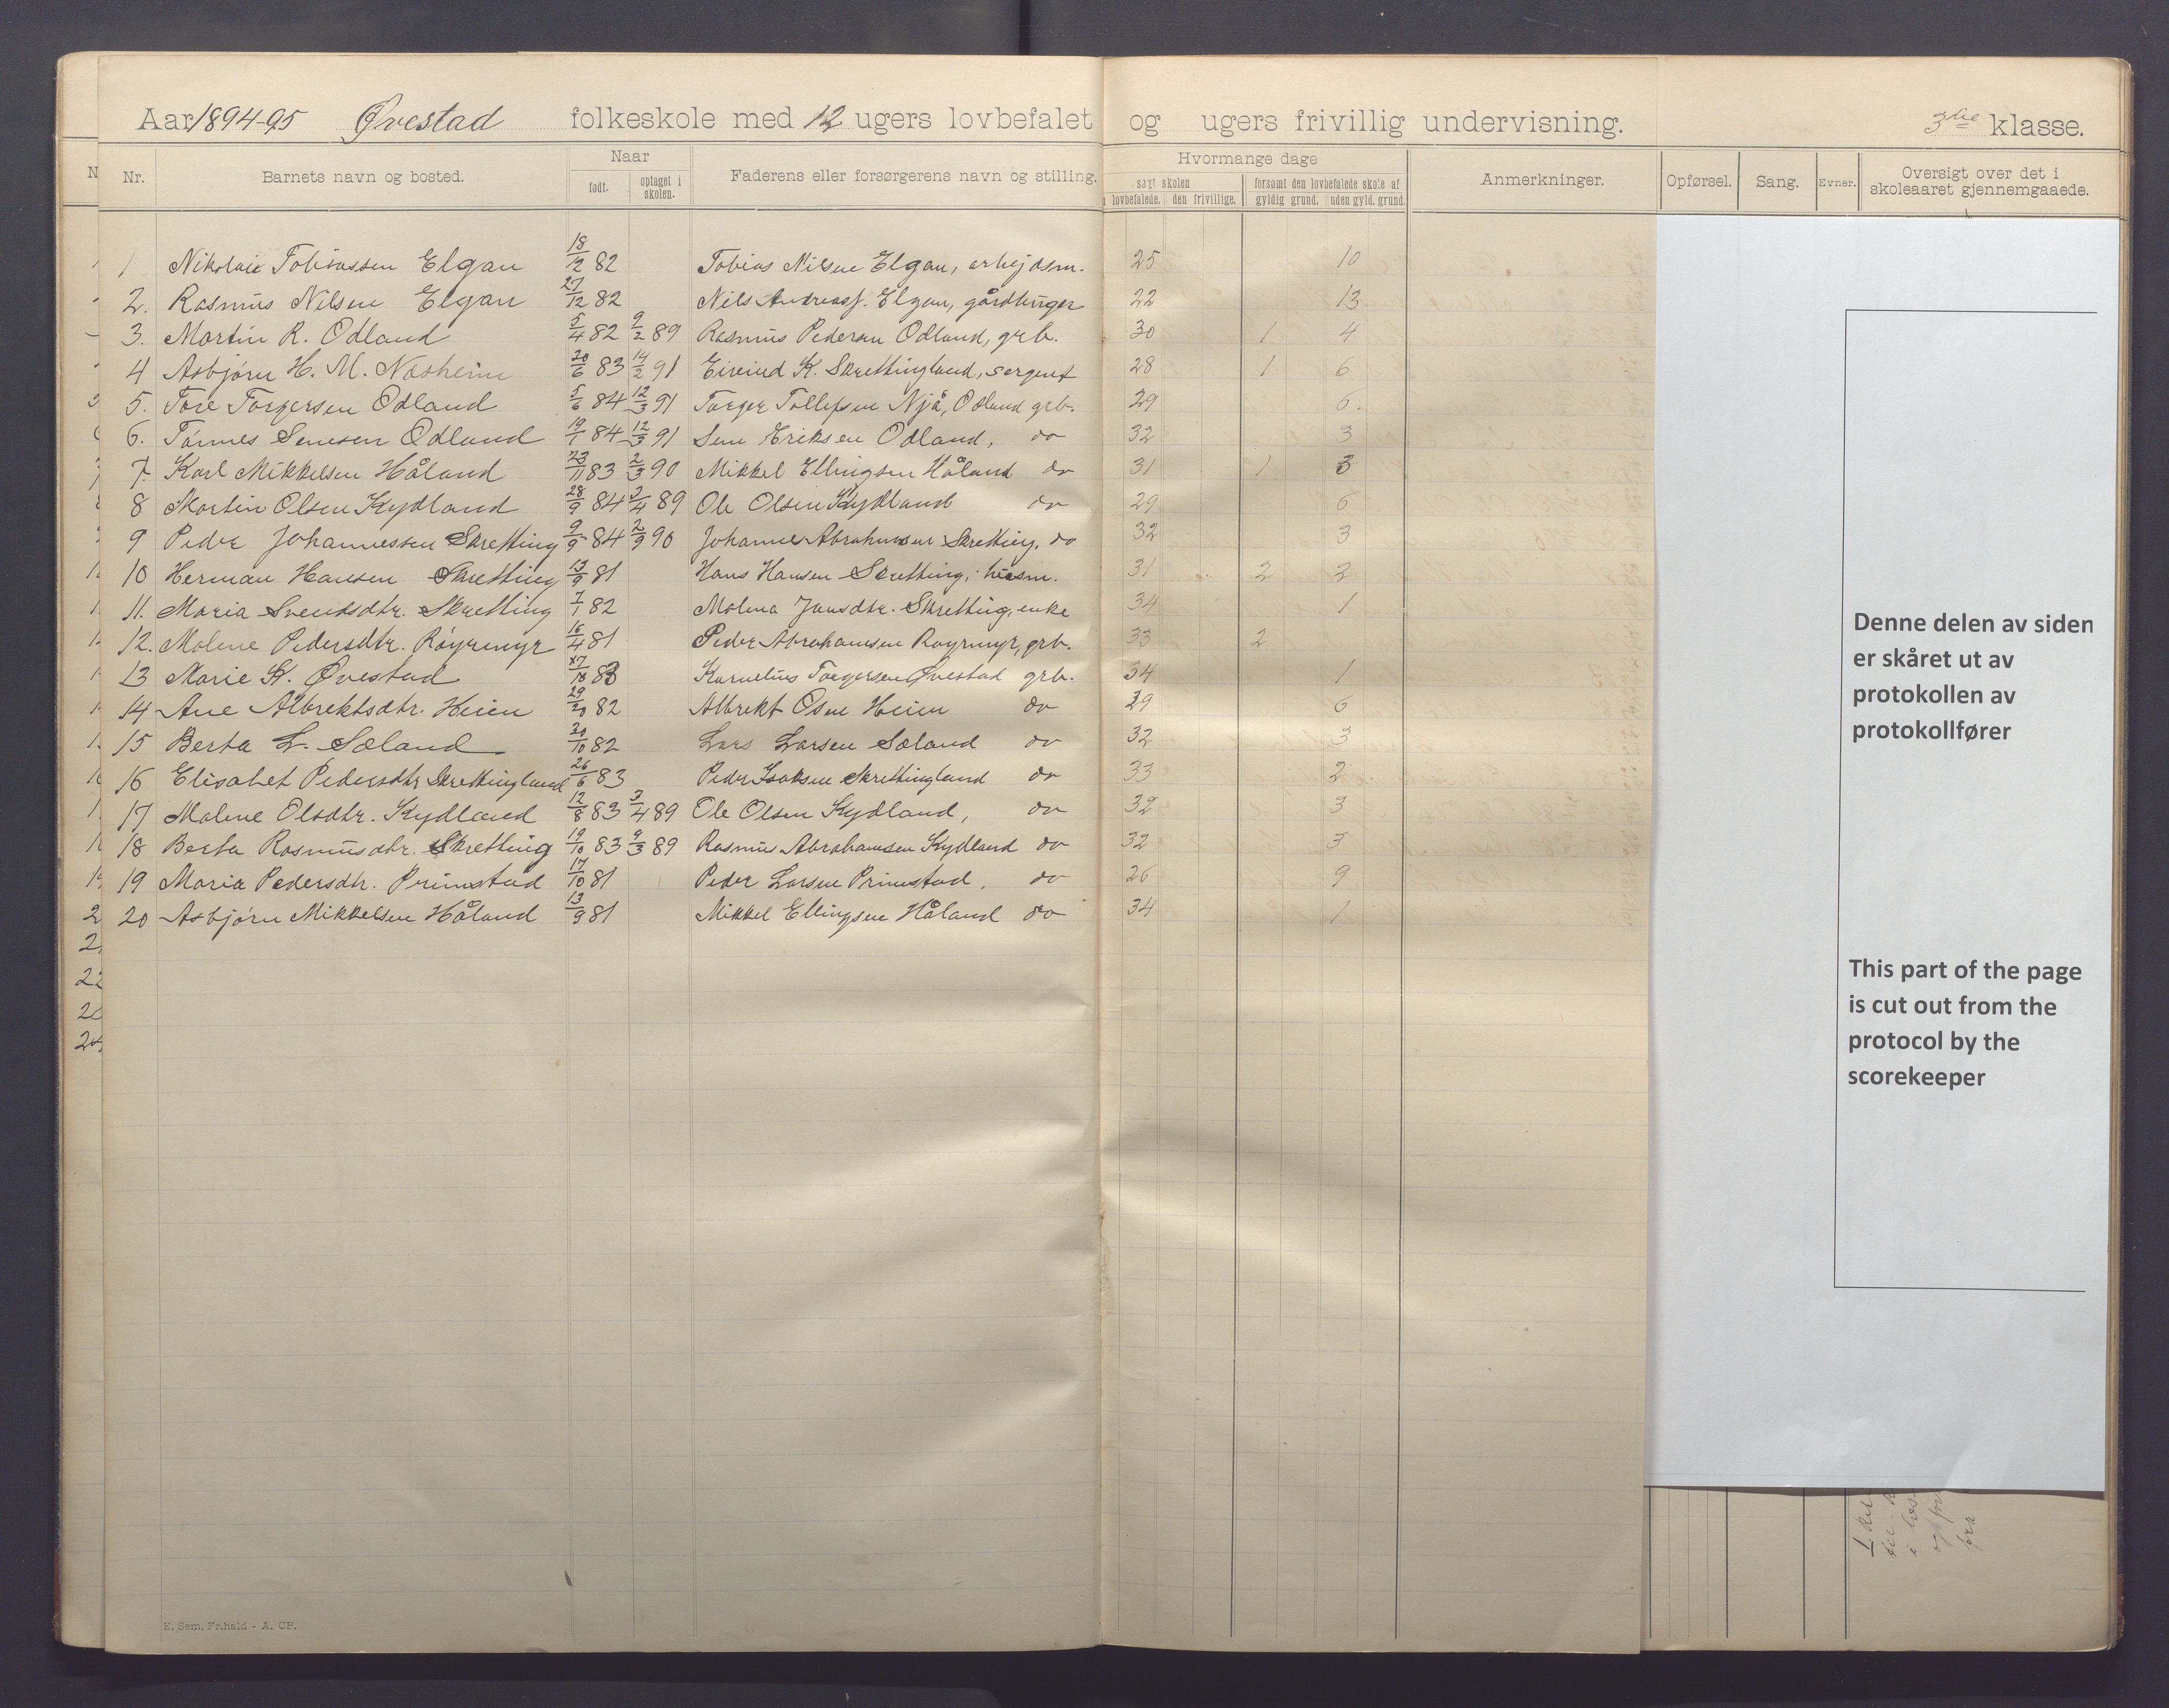 Aar 1894-95 Øvestad folkeskole med 12 ugers lovbefalet og ugers frivillig undervisning. 3die klasse.
Nr. Barnets navn og bosted. Naar født. optaget i skolen. Faderens eller forsørgerens navn og stilling. Hvormange dage søgt skolen lovbefalede. den frivillige. forsømt den lovbefalede skole af gyldig grund. uden gyld. grund. Anmerkninger. Opførsel. Sang. Evner. Oversigt over det i skoleaaret gjennemgaaede.
1 Nikolai Tobiassen Elgan 18/12 82 Tobias Nilsen Elgan, arbejdsm. 25 10
2. Rasmus Nilsen Elgan 27/12 82 Nils Andreass. Elgan, gårdbruger 22 13
3. Martin R. Odland 5/4 82 9/2 89 Rasmus Pedersen Odland, grb. 30 1 4
4 Asbjørn H. M. Næsheim 20/6 83 14/2 91 Eivind K. Skrettingland, sergent 28 1 6
5. Tore Torgersen Odland 5/6 84 12/3 91 Torger Tollefsen Njå, Odland grb. 29 6.
6. Tønnes Semsen Odland 19/1 84 12/3 91 Sem Eriksen Odland, do 32 3
7. Karl Mikkelsen Håland 23/11 83 2/3 90 Mikkel Ellingsen Håland do 31 1 3
8 Martin Olsen Kydland 28/9 84 3/4 89 Ole Olsen Kydland do 29 6
9 Peder Johannessen Skretting 9/9 84 2/9 90 Johannes Abrahamsen Skretting, do 32 3
10 Herman Hansen Skretting 13/9 81 Hans Hansen Skretting, husm. 31 2 2
11. Maria Svendsdtr. Skretting 7/1 82 Malena Jansdtr. Skretting, enke 34 1
12. Malene Pedersdtr. Røyrmyr 16/4 81 Peder Abrahamsen Røyrmyr, grb. 33 2
13 Marie K. Øvestad 17/10 83 Kornelius Torgersen Øvestad grb. 34 1
14 Ane Albrektsdtr. Heien 29/10 82 Albrekt Osen Heien do 29 6
15 Berta L. Sæland 20/10 82 Lars Larsen Sæland do 32 3
16 Elisabet Pedersdtr Skrettingland 26/6 83 Peder Isaksen Skrettingland do 33 2
17 Malene Olsdtr. Kydland 12/8 83 3/4 89 Ole Olsen Kydland, do 32 3
18 Berta Rasmusdtr. Skretting 19/10 83 9/3 89 Rasmus Abrahamsen Kydland do 32 3
19 Maria Pedersdtr. Primstad 17/10 81 Peder Larsen Primstad, do 26 9
20 Asbjørn Mikkelsen Håland 13/9 81 Mikkel Ellingsen Håland do 34 1
Denne delen av siden
er skåret ut av
protokollen av
protokollfører
This part of the page
is cut out from the
protocol by the
scorekeeper
E. Sem, Fr.hald - A. CP.